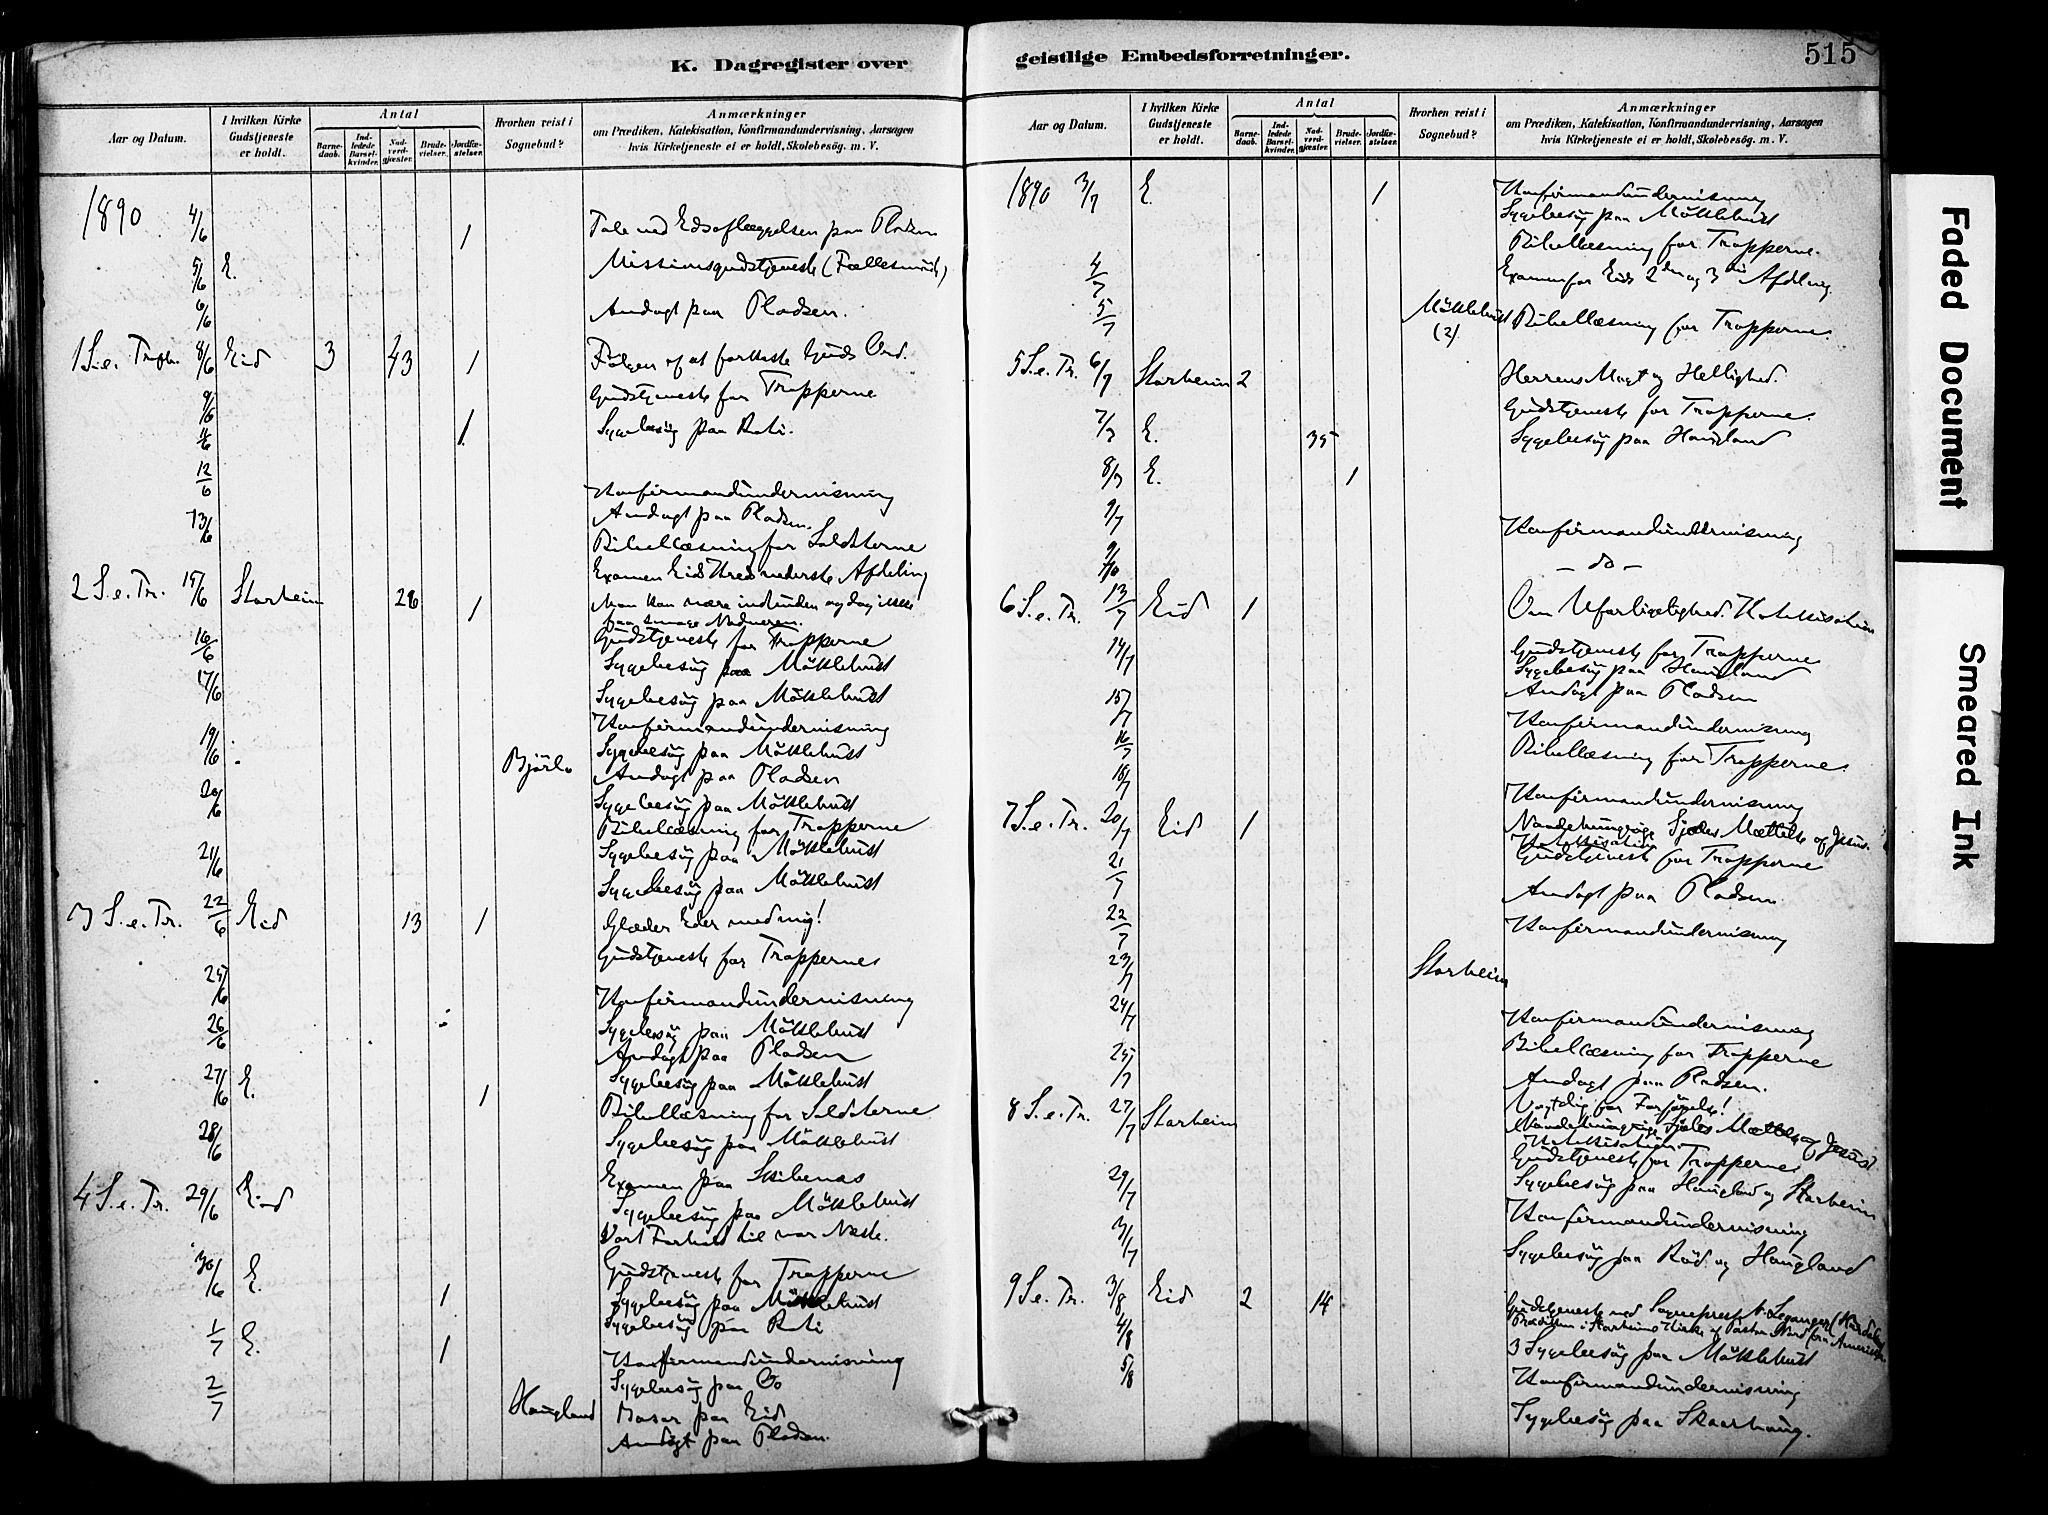 K. Dagregister over
geistlige Embedsforretninger.
515
Aar og Datum.
I hvilken Kirke Gudstjeneste er holdt.
Antal
Barnedaab.
Indledede Barselkvinder.
Nadverdgjæster.
Brudevielser.
Jordfæstelser.
Hvorhen reist i Sognebud?
Anmærkninger
om Prædiken, Katekisation, Konfirmandundervisning, Aarsagen
hvis Kirketjeneste ei er holdt, Skolebesøg. m. V.
1890 4/6 1 Tale ved Edsaflæggelsen paa Pladsen
5/6 E. Missionsgudstjeneste
6/6 Andagt paa Pladsen.
1 S. e. 8/6 Eid 3 43 1 Følgen af at forkaste Guds Ord.
Gudstjeneste for Tropperne
9/6
1 Sygebesøg paa
12/6
Konfirmandundervisning
13/6 Andagt paa Pladsen.
Bibellæsning for Soldaterne
Examen Eids Afdeling
2 S. e. Tr. 15/6 Starheim 26 1 Man kan være indbuden og dog ikke
faa smage Nadveren.
16/6 Gudstjeneste for Tropperne
Sygebesøg paa Möklebust
17/6 Sygebesøg paa Möklebust
Konfirmandundervisning
19/6 Sygebesøg paa Möklebust
Bjørlo Andagt paa Pladsen
20/6 Sygebesøg paa Möklebust
Bibellæsning for Tropperne
21/6 Sygebesøg paa Möklebust
Sygebesøg paa Möklebust
3 S. e. Tr. 22/6 Eid 13 1 Glæder Eder med mig!
Gudstjeneste for Tropperne
25/6
Konfirmandundervisning
26/6 Sygebesøg paa Möklebust
Andagt paa Pladsen
27/6 E. 1 Sygebesøg paa Möklebust
Bibellæsning for Soldaterne
28/6 Sygebesøg paa Möklebust
Examen paa Skibenæs
4 S. e. Tr. 29/6 Eid Sygebesøg paa Möklebust
Vort Forhold til vor Næste.
30/6 E. 1 Gudstjeneste for Tropperne
Sygebesøg paa Möklebust
Sygebesøg paa
1/7 E. 1 Konfirmandundervisning
Sygebesøg paa Os
2/7 Haugland Basar paa Eid
Andagt paa Pladsen.
Aar og Datum.
I hvilken Kirke Gudstjeneste er holdt.
Antal
Barnedaab.
Indledede Barselkvinder.
Nadverdgjæster.
Brudevielser.
Jordfæstelser.
Hvorhen reist i Sognebud?
Anmærkninger
om Prædiken, Katekisation, Konfirmandundervisning, Aarsagen
hvis Kirketjeneste ei er holdt, Skolebesøg. m. V.
1890 3/7 E. 1 Konfirmandundervisning
Sygebesøg paa Möklebust
Bibellæsning for Tropperne.
4/7 Examen for Eids 2den og 3die Afdeling
5/7 Möklebust (2) Bibellæsning for Tropperne.
5 S. e. Tr. 6/7 Starheim 2 Herrens Magt og Hellighed.
Gudstjeneste for Tropperne.
7/7 E. 35 Sygebesøg paa Haugland
8/7 E. 1
9/7 Konfirmandundervisning
– do –
6 S. e. Tr. 13/7 Eid 1 Om Uforligelighed. Katekisation
14/7 Gudstjeneste for Tropperne
Sygebesøg paa Haugland
15/7 Andagt paa Pladsen
Konfirmandundervisning
16/7 Bibellæsning for Tropperne.
18/7
Konfirmandundervisning
7 S. e. Tr. 20/7 Eid 1 Naadehungrige Sjæles Mættelse af Jesus.
Katekisation
21/7 Gudstjeneste for Tropperne
Andagt paa Pladsen
22/7
Konfirmandundervisning
23/7 Starheim
24/7
Konfirmandundervisning
25/7 Bibellæsning for Tropperne
Andagt paa Pladsen.
8 S. e. Tr. 27/7 Starheim Vogt dig for Forførelse!
Naadehungrige Sjæles Mættelse af Jesus.
Katekisation
Gudstjeneste for Tropperne
29/7 Sygebesøg paa Haugland og Starheim
Konfirmandundervisning
31/7 Sygebesøg paa Rød og Haugland
9 S. e. Tr. 3/8 Eid 2 14 Gudstjeneste ved Sogneprest
4/8 Prædiken i Starheims Kirke af Pastor Nord fra Amerika
3 Sygebesøg paa Möklebust
5/8 Konfirmandundervisning
Sygebesøg paa Skaarhaug.
Faded Document
Smeared Ink